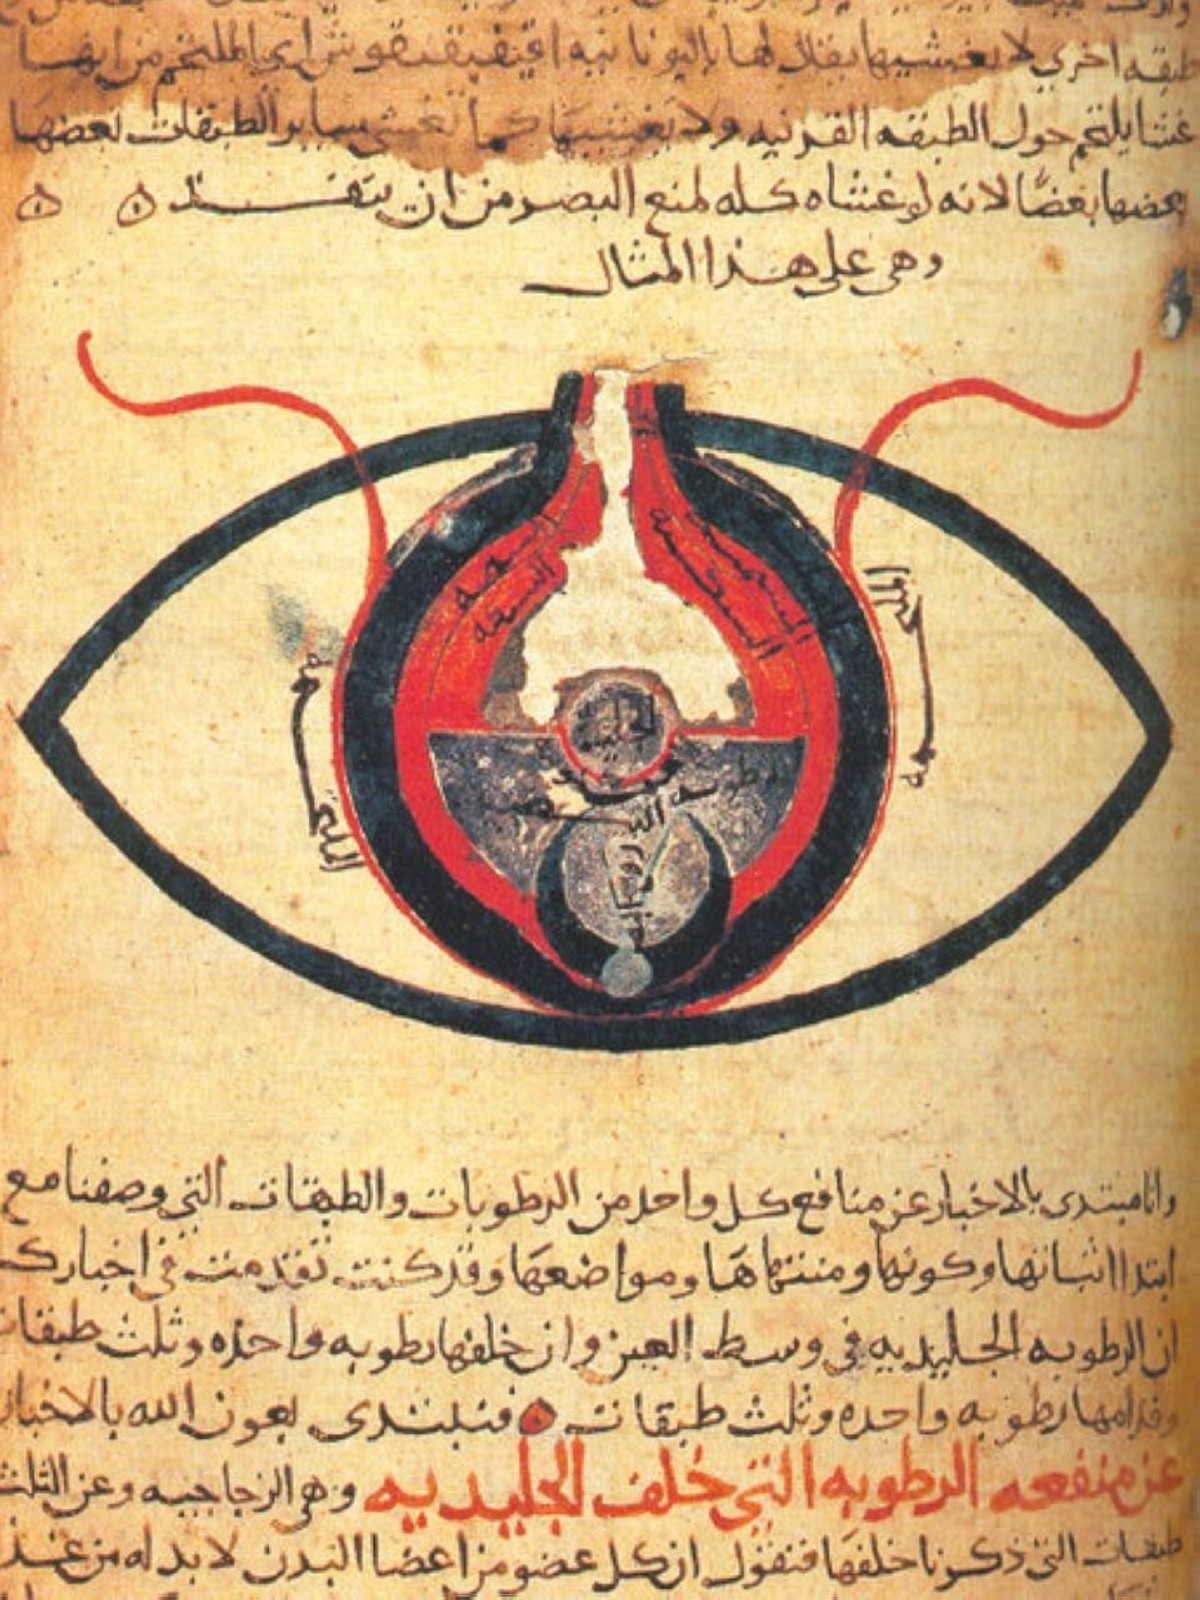 طبقه اخرى لا يغشيها يقال لها باليونانيه اي الملتحم من ايضا
غشا يلتحم حول الطبقه القرنيه ولا يغشيها كما تغشى ساير الطبقات بعضها
بعضها بعضًا لانه لو غشاه كله لمنع البصر من ان ينفذ
وهى على هذا المثال
الملتحمه
الملتحمه
المشيميه
الشبكيه
الجليديه
الرطوبه البيضيه
وانا مبتدى بالاخبار عن منافع كل واحد من الرطوبات والطبقات التي وصفنا مع
ابتدا اثباتها وكونها ومنتهاها ومواضعها وقد كنت تقدمت في اخبارك
ان الرطوبه الجليديه في وسط العين وان خلفها رطوبه واحده وثلث طبقات
وقدامها رطوبه واحده وثلث طبقات فنبتدى بعون الله بالاخبار
عن منفعه الرطوبه التي خلف الجليديه وهى الزجاجيه وعن الثلث
طبقات التي ذكرنا خلفها فنقول ان كل عضو من اعضا البدن لا بد له من غذا